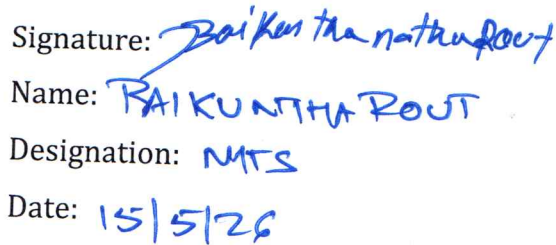 Signature: Baikunthanathu Rout
Name: BAIKUNTHA ROUT
Designation: MTS
Date: 15/5/26